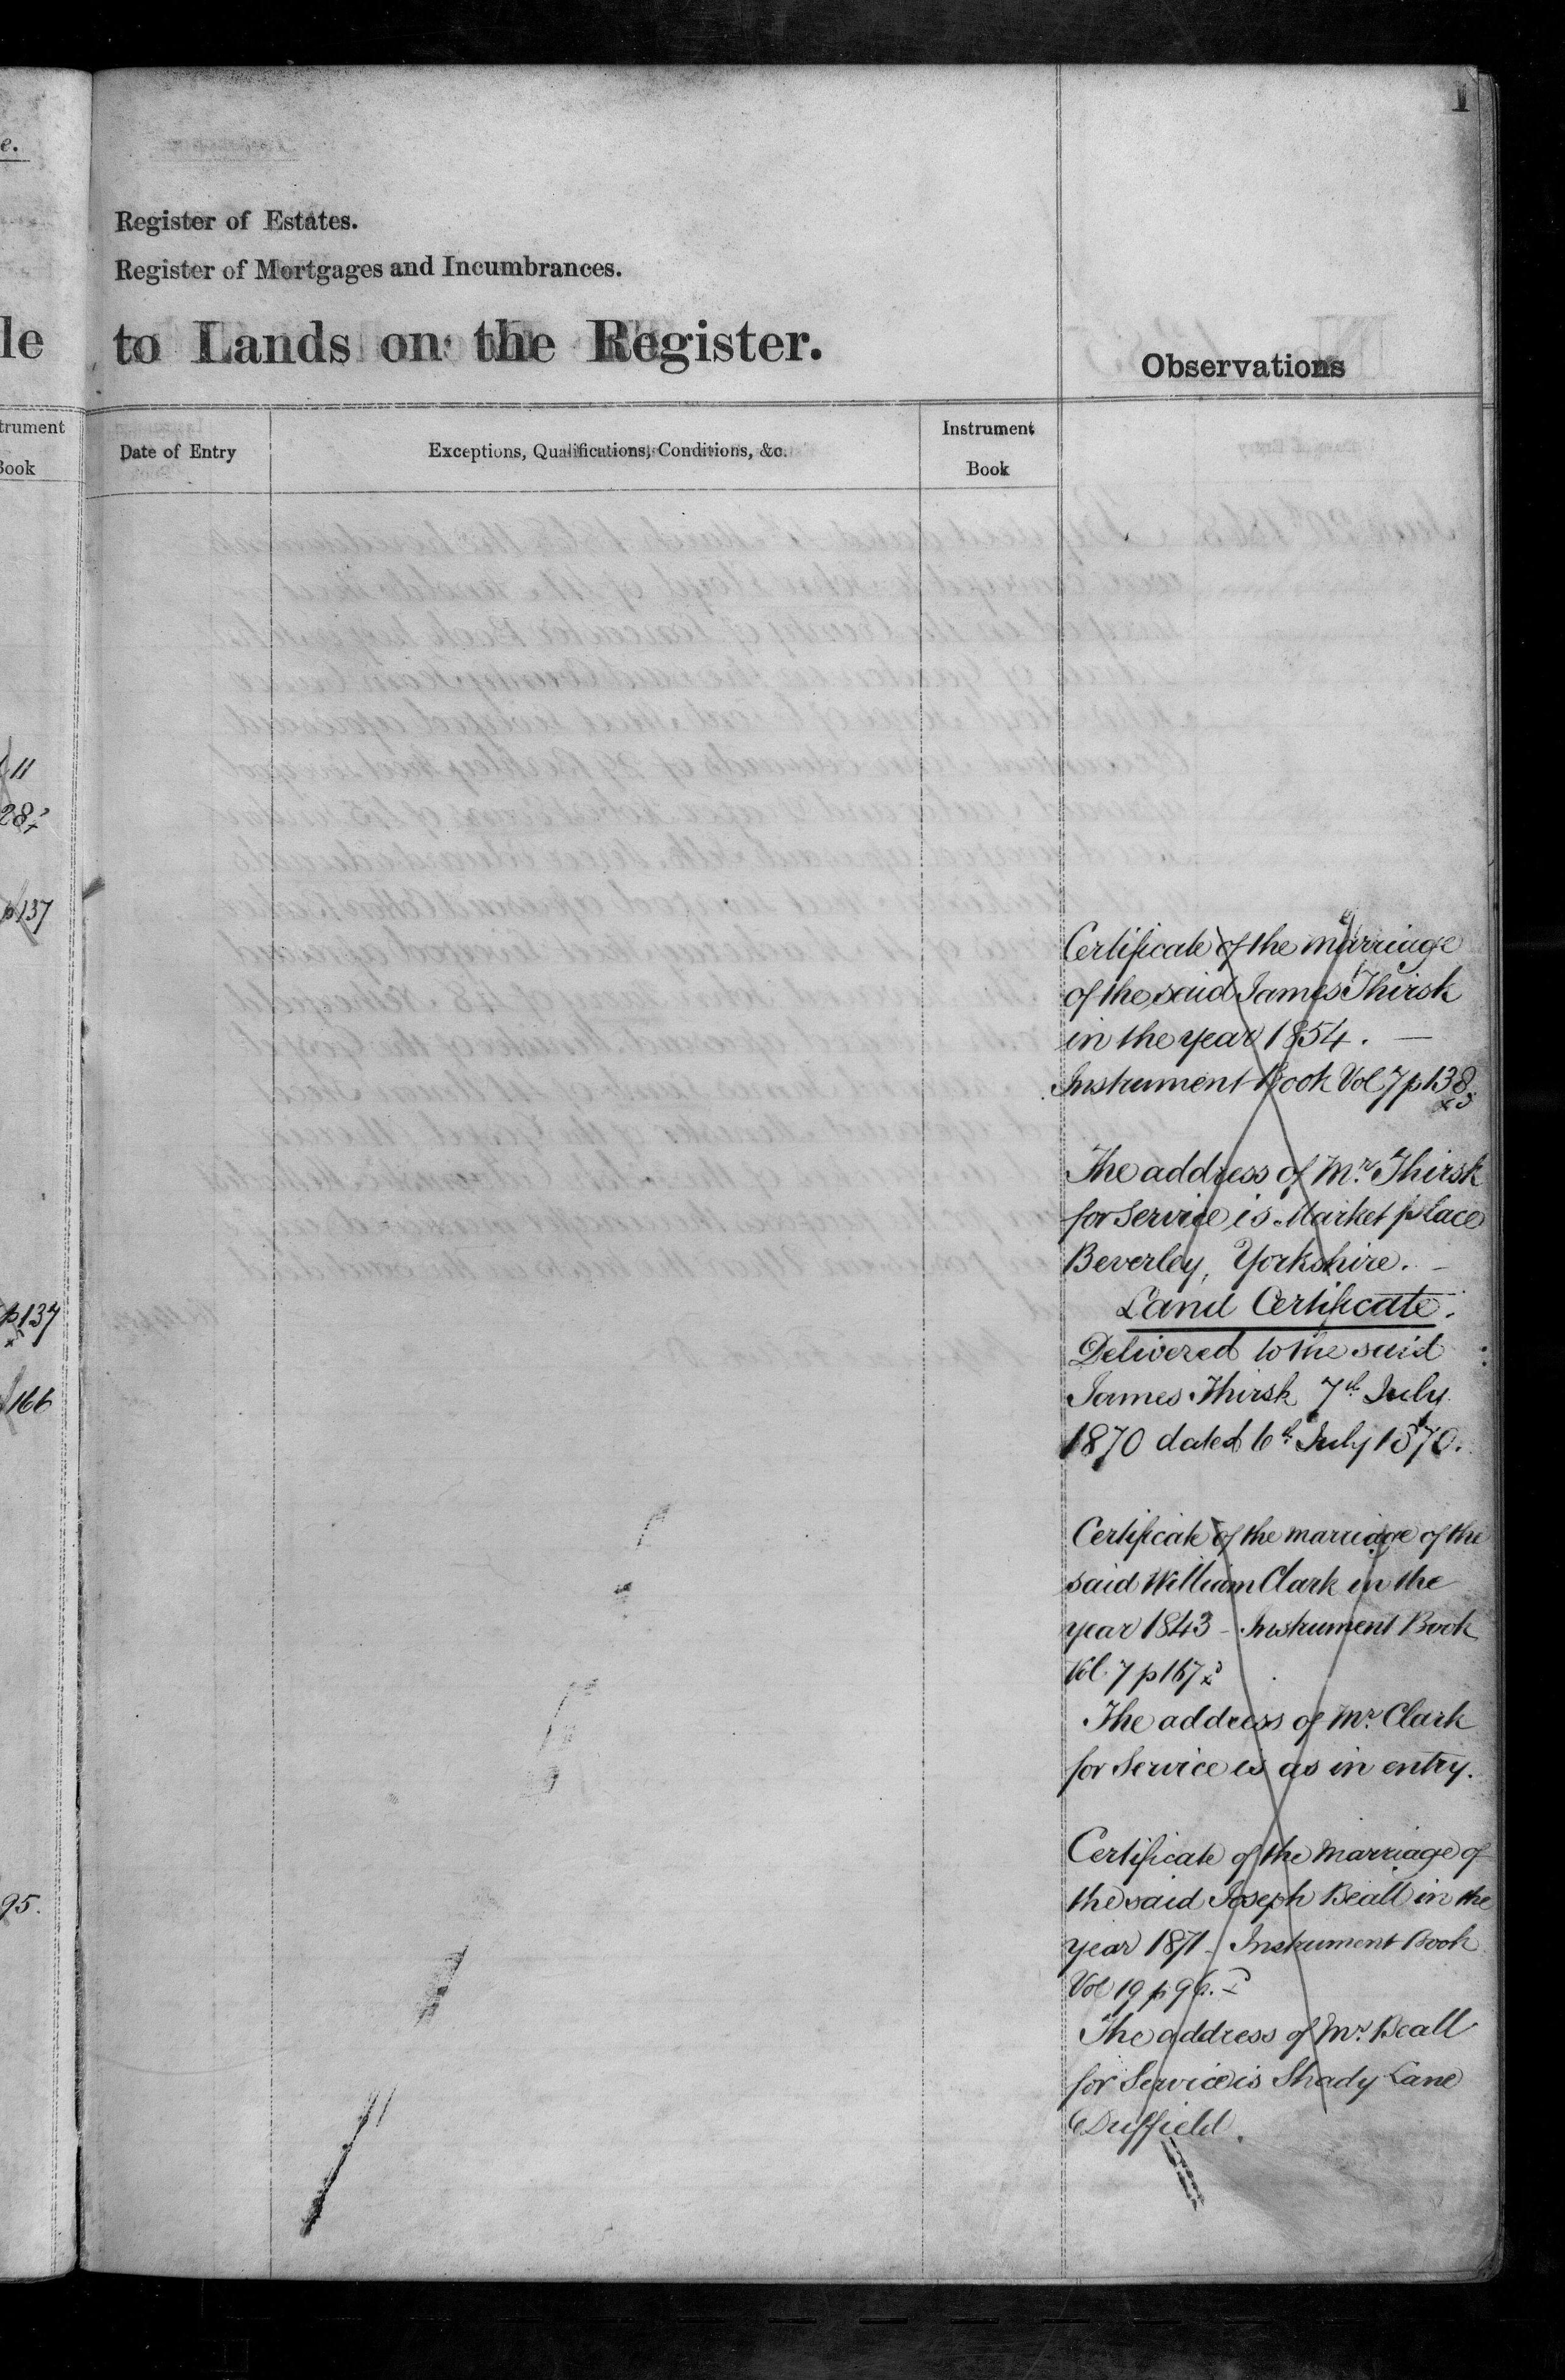 1
e.
Register of Estates.
Register of Mortgages and Incumbrances.
le
to Lands on the Register.
Observations
trument
Book
Date of Entry
Exceptions, Qualifications, Conditions, &c.
Instrument
Book
11
28
p137
p137
166
95.
Certificate of the marriage
of the said James Thirsk
in the year 1854. —
Instrument Book Vol 7 p 138
The address of Mr. Thirsk
for Service is Market place
Beverley, Yorkshire. –
Land Certificate.
Delivered to the said
James Thirsk 7th July
1870 dated 6th July 1870.
Certificate of the marriage of the
said William Clark in the
year 1843 – Instrument Book
Vol. 7 p 167
The address of Mr. Clark
for Service is as in entry.
Certificate of the Marriage of
the said Joseph Beall in the
year 1871 – Instrument Book
Vol 19 p 96.
The address of Mr. Beall
for Service is Shady Lane
Duffield.